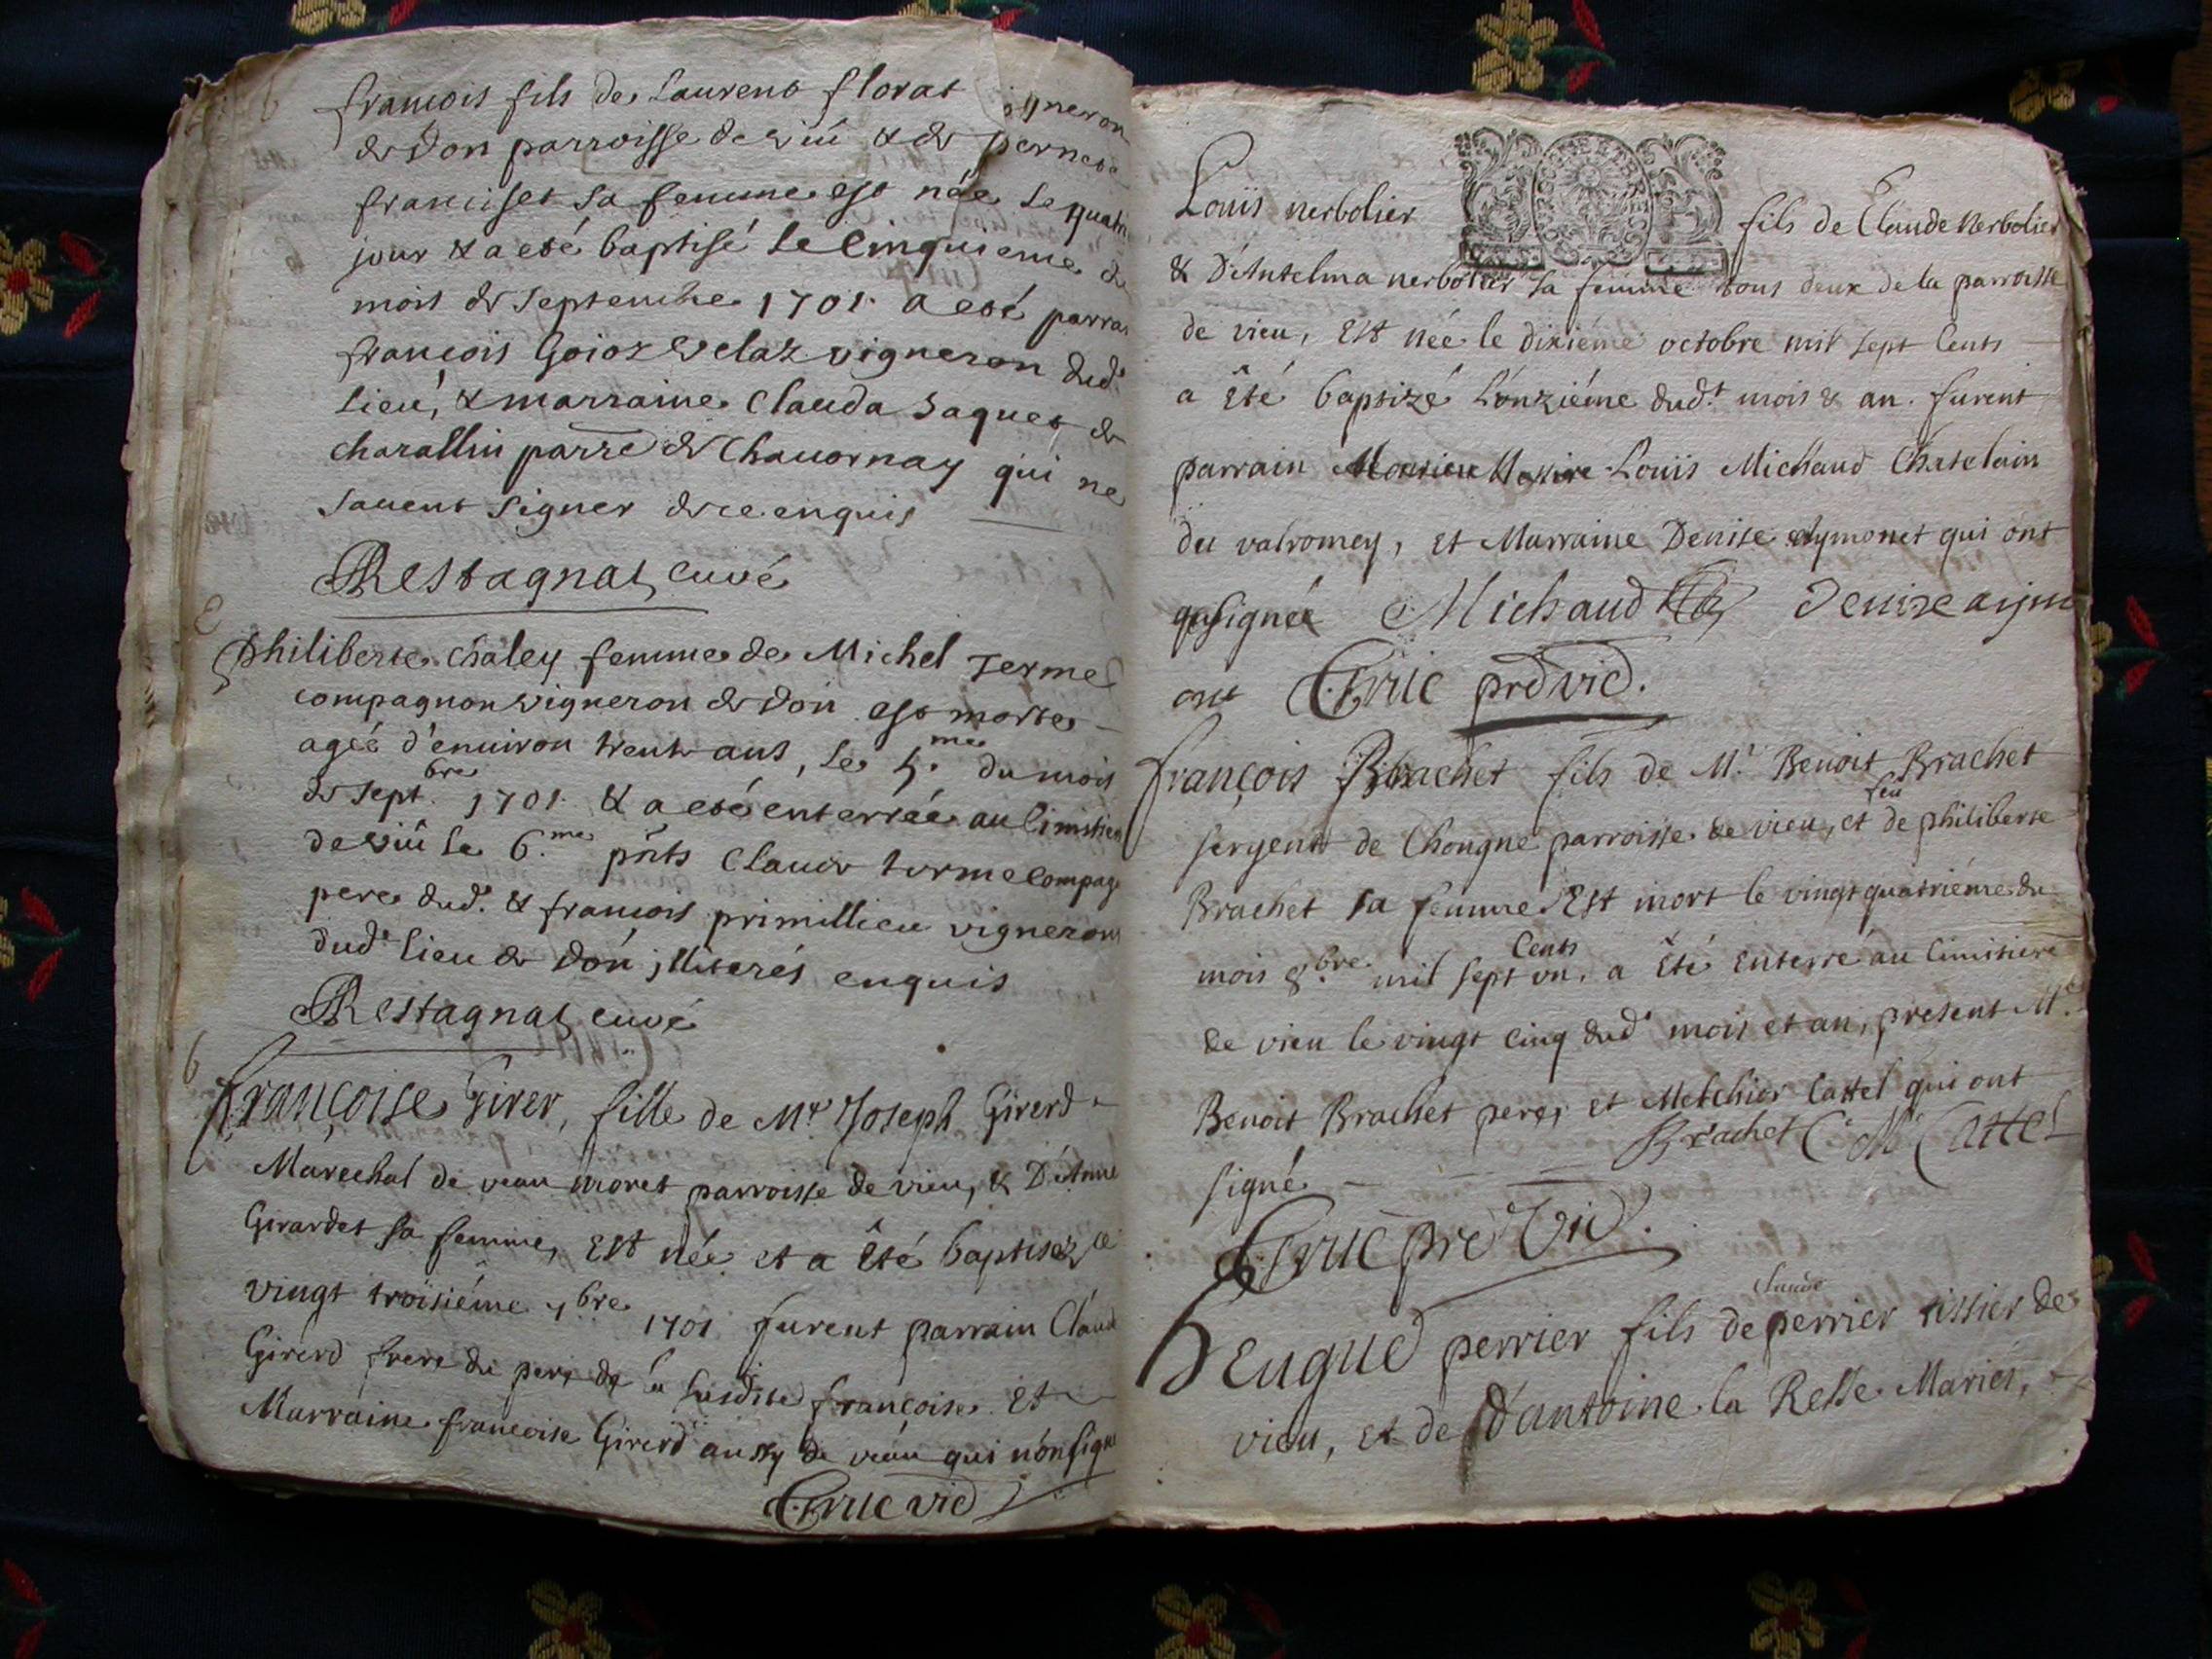 b
françois fils de Laurent florat vigneron
de Don parroisse de viu & de pernete
franciset sa femme est née le quatr
jour & a esté baptisé le Cinquieme de
mois de septembre 1701. a esté parra
françois Goioz velaz vigneron dud.t
lieu, & marraine Clauda Jaquet de
charallin parre de Chauornay qui ne
sauent signer de ce enquis
Restagnat curé
Philiberte Chaley femme de Michel Terme
compagnon vigneron de Don est morte
agée d'enuiron trente ans, le 5.me du mois
de Sept.bre 1701. & a esté enterrée au Cimitiere
de viu le 6.me pñts Claude terme Compag
pere dud.t & françois primillieu vignerons
dud.t lieu de Don jlliterés enquis
Restagnat curé
b
françoise Girer, fille de M.r Joseph Girerd
Marechal de veau moret parroisse de vieu, & D'Anne
Girardet sa femme, Est née et a Été baptisez ce
vingt troisiéme 7bre 1701 furent parrain Claud
Girerd frere du pere de la susdite françoise Et
Marraine françoise Girerd aussy de vieu qui n'ont signe
vic
b
Louïs nerbolier fils de Claude Nerbolier
& D'Antelma nerbolier sa femme tous deux de la parroisse
de vieu, Est née le dixiéme octobre mil sept Cents
a Été baptizé L'onziéme dud.t mois & an. furent
parrain Messire Louïs Michaud Chatelain
du valromey, et Marraine Denise Aymonet qui ont
signée Michaud Denise aym
ont prd vic.
françois Brachet fils de M.r Benoit Brachet
sergent de Chongne parroisse de vieu, et de feu philiberte
Brachet sa femme. Est mort le vingt quatriéme du
mois 8.bre mil sept Cents un. a Été Enterré au Cimitiere
de vieu le vingt cinq dud.t mois et an, présent M.e
Benoit Brachet pere, et Melchior Cattel qui ont
signé Brachet M Cattel
pre Vic.
heugue perrier fils de Claude perrier tissier de
vieu, et de d'antoine la Resse Mariés,